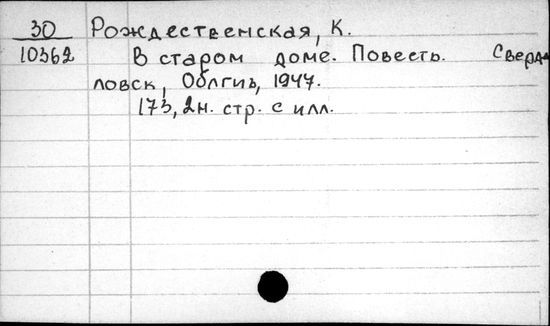 30 Рождественская, К.
10362 В старом доме. Повесть. Сверд-
ловск, Облгиз, 1947.
173, 2н. стр. с илл.